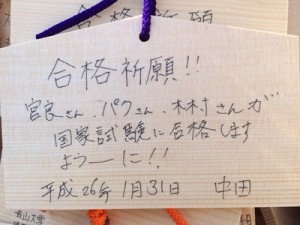 合格祈願
合格祈願!!
宮良さん、パクさん、木村さんが
国家試験に合格します
よう―に!!
平成26年1月31日 中田
青山文学